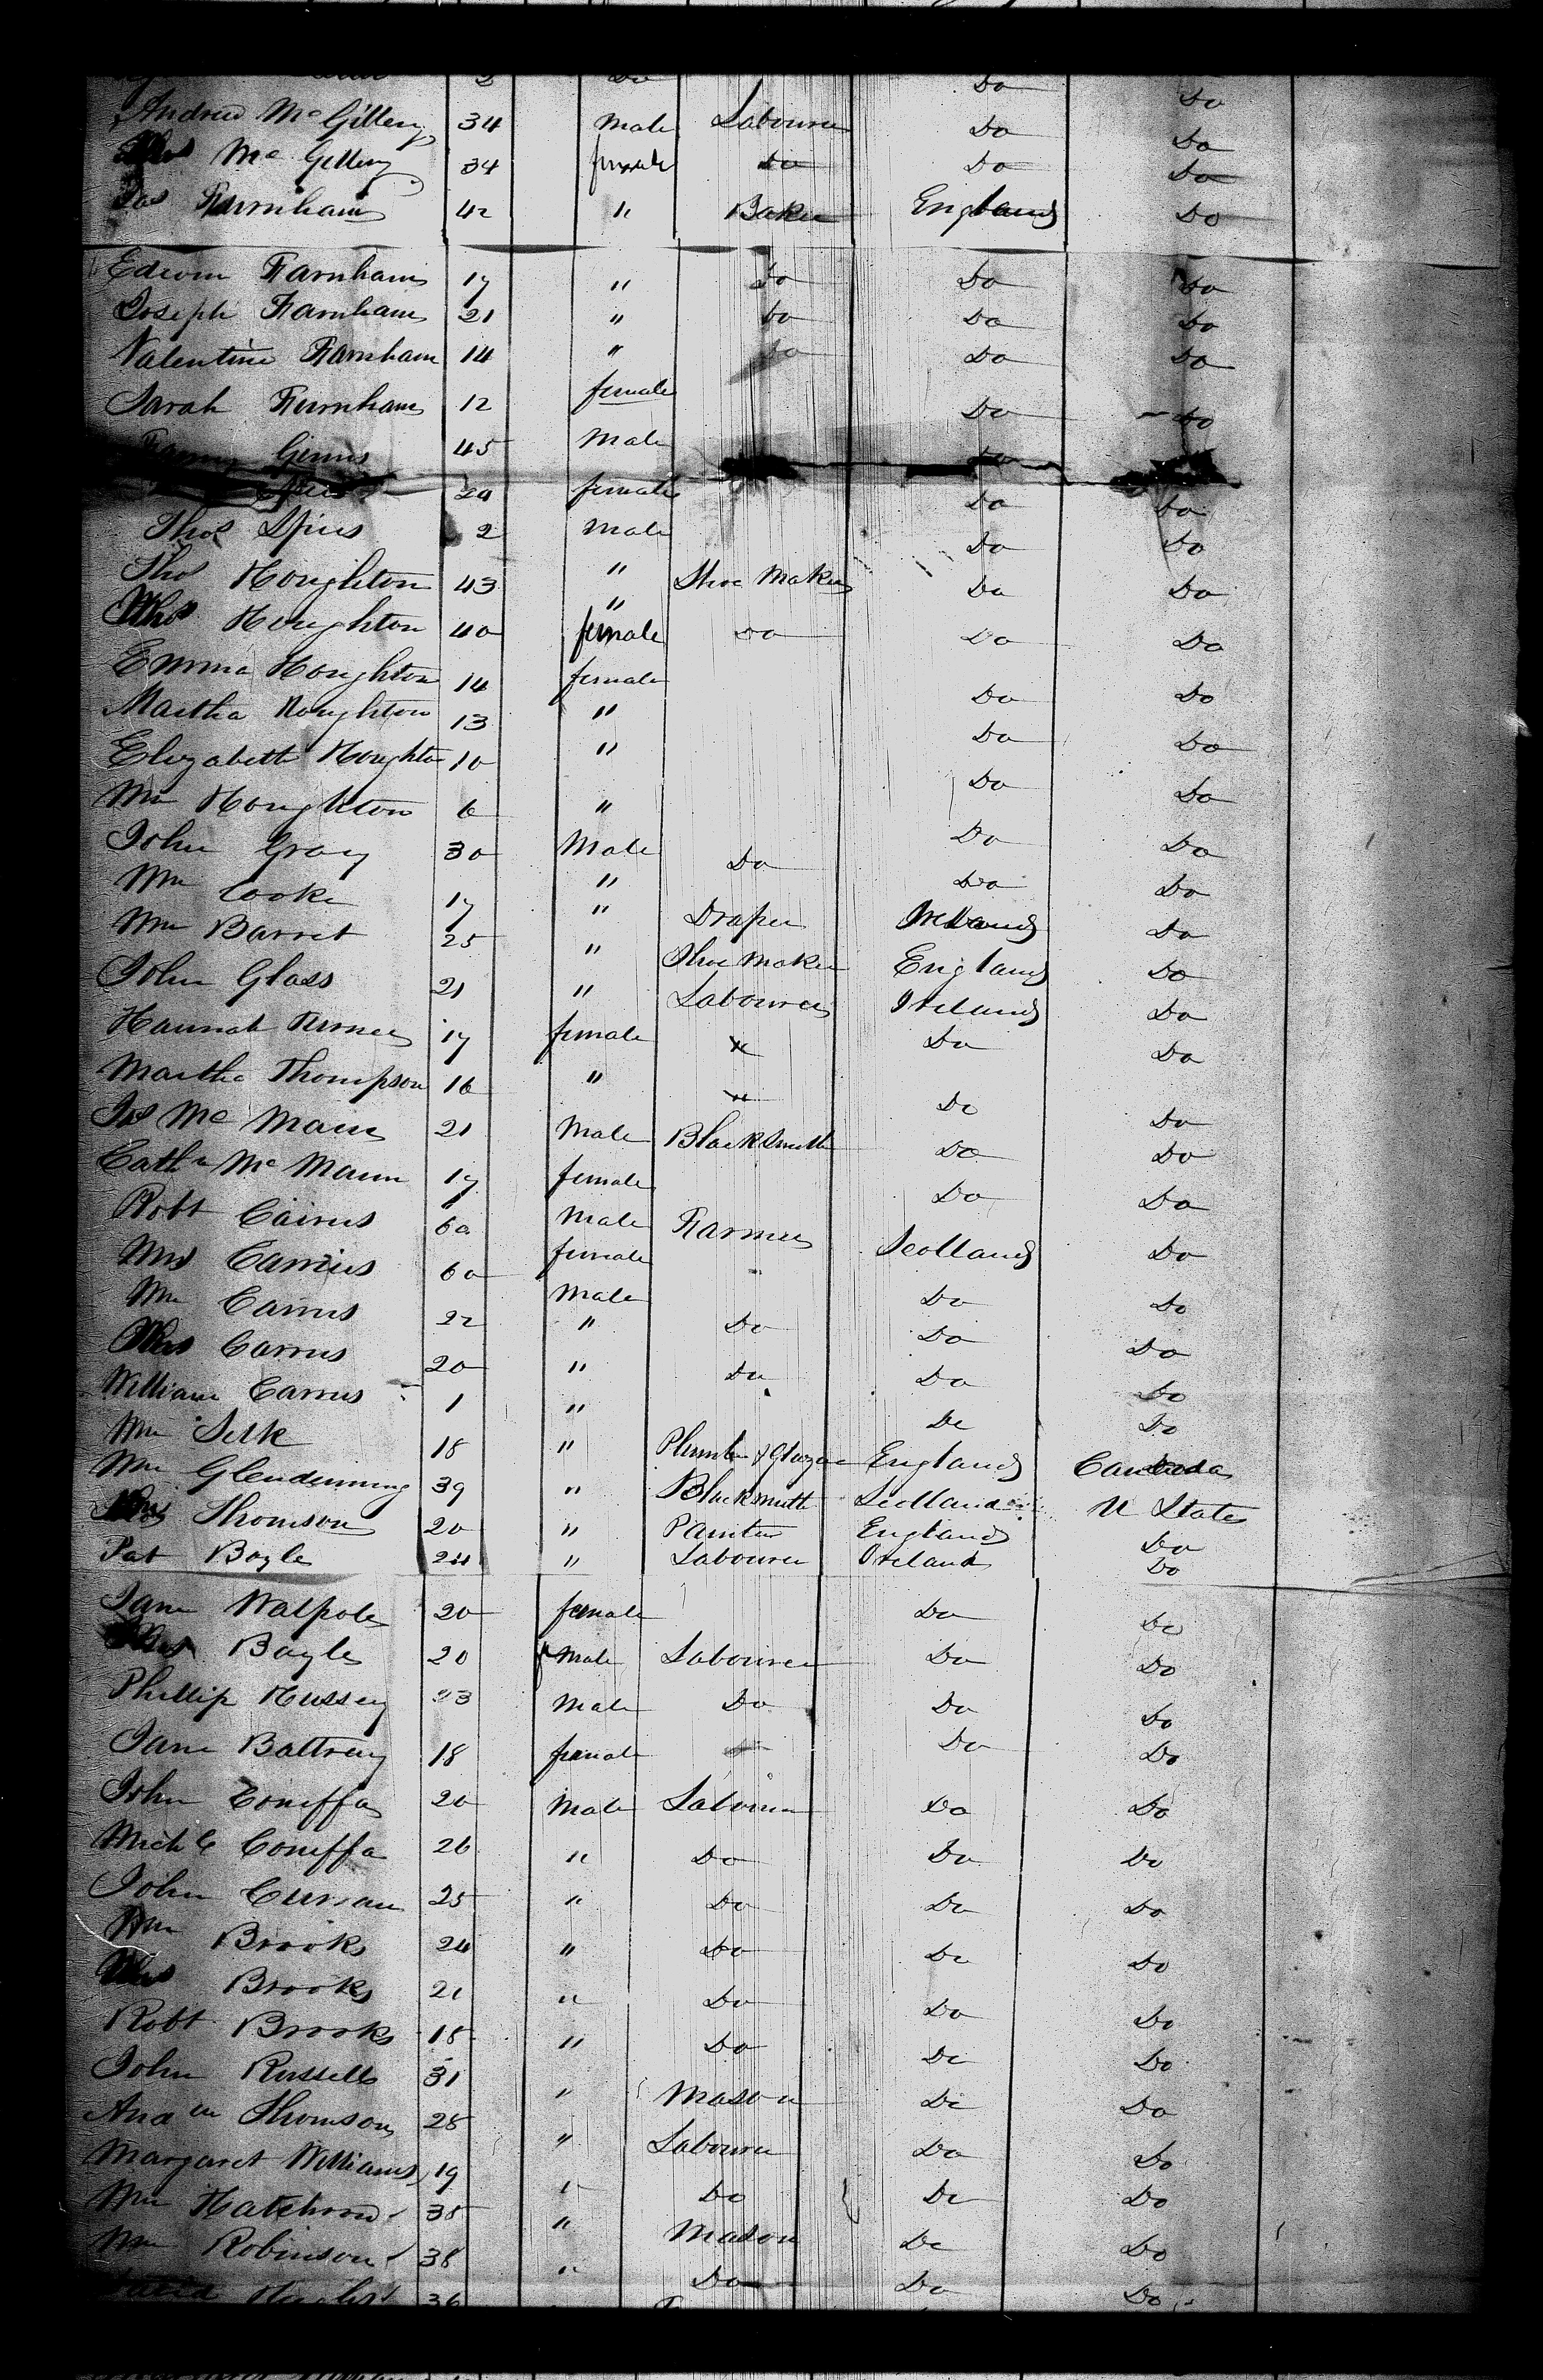 Do Do
Andrew McGillery 34 Male Labourer Do Do
Mrs McGillery 34 female Do Do Do
Jas Farnham 42 " Baker England Do
Edwin Farnham 17 " Do Do Do
Joseph Farnham 21 " Do Do Do
Valentine Farnham 14 " Do Do Do
Sarah Farnham 12 female Do Do
Ginns 45 Male
female Do Do
Thos Spiers 2 Male Do Do
Thos Houghton 43 " Shoe Maker Do Do
Mrs Houghton 40 female Do Do Do
Emma Houghton 14 female Do Do
Martha Houghton 13 " Do Do
Elizabeth Houghton 10 " Do Do
Wm Houghton 6 " Do Do
John Gray 30 Male Do Do Do
Wm Cooke 17 " Draper Ireland Do
Wm Barret 25 " Shoe Maker England Do
John Glass 21 " Labourer Ireland Do
Hannah Turner 17 female " Do Do
Martha Thompson 16 " " Do Do
Jas McMann 21 Male Blacksmith Do Do
Cathn McMann 17 female Do Do
Robt Cairns 60 Male Farmer Scotland Do
Mrs Cairns 60 female Do Do
Wm Cairns 22 Male Do Do Do
Mrs Cairns 20 " Do Do Do
William Cairns 1 " Do Do
Wm Silk 18 " Plumber & Glazier England Canada
Wm Glendinning 39 " Blacksmith Scotland U States
Thomson 20 " Painter England Do
Pat Boyle 24 " Labourer Ireland Do
Jane Walpole 20 female Do Do
Boyle 20 Male Labourer Do Do
Phillip Hussey 23 Male Do Do Do
Jane Battrey 18 female Do Do
John Coneffa 20 Male Labourer Do Do
Michl Coneffa 26 " Do Do Do
John Curran 25 " Do Do Do
Wm Brooks 24 " Do Do Do
Mrs Brooks 21 " Do Do Do
Robt Brooks 18 " Do Do Do
John Russell 31 " Mason Do Do
Andw Thomson 28 " Labourer Do Do
Margaret Williams 19 " Do Do Do
Wm 35 " Mason Do Do
Wm Robinson 38 " Do Do Do
David 36